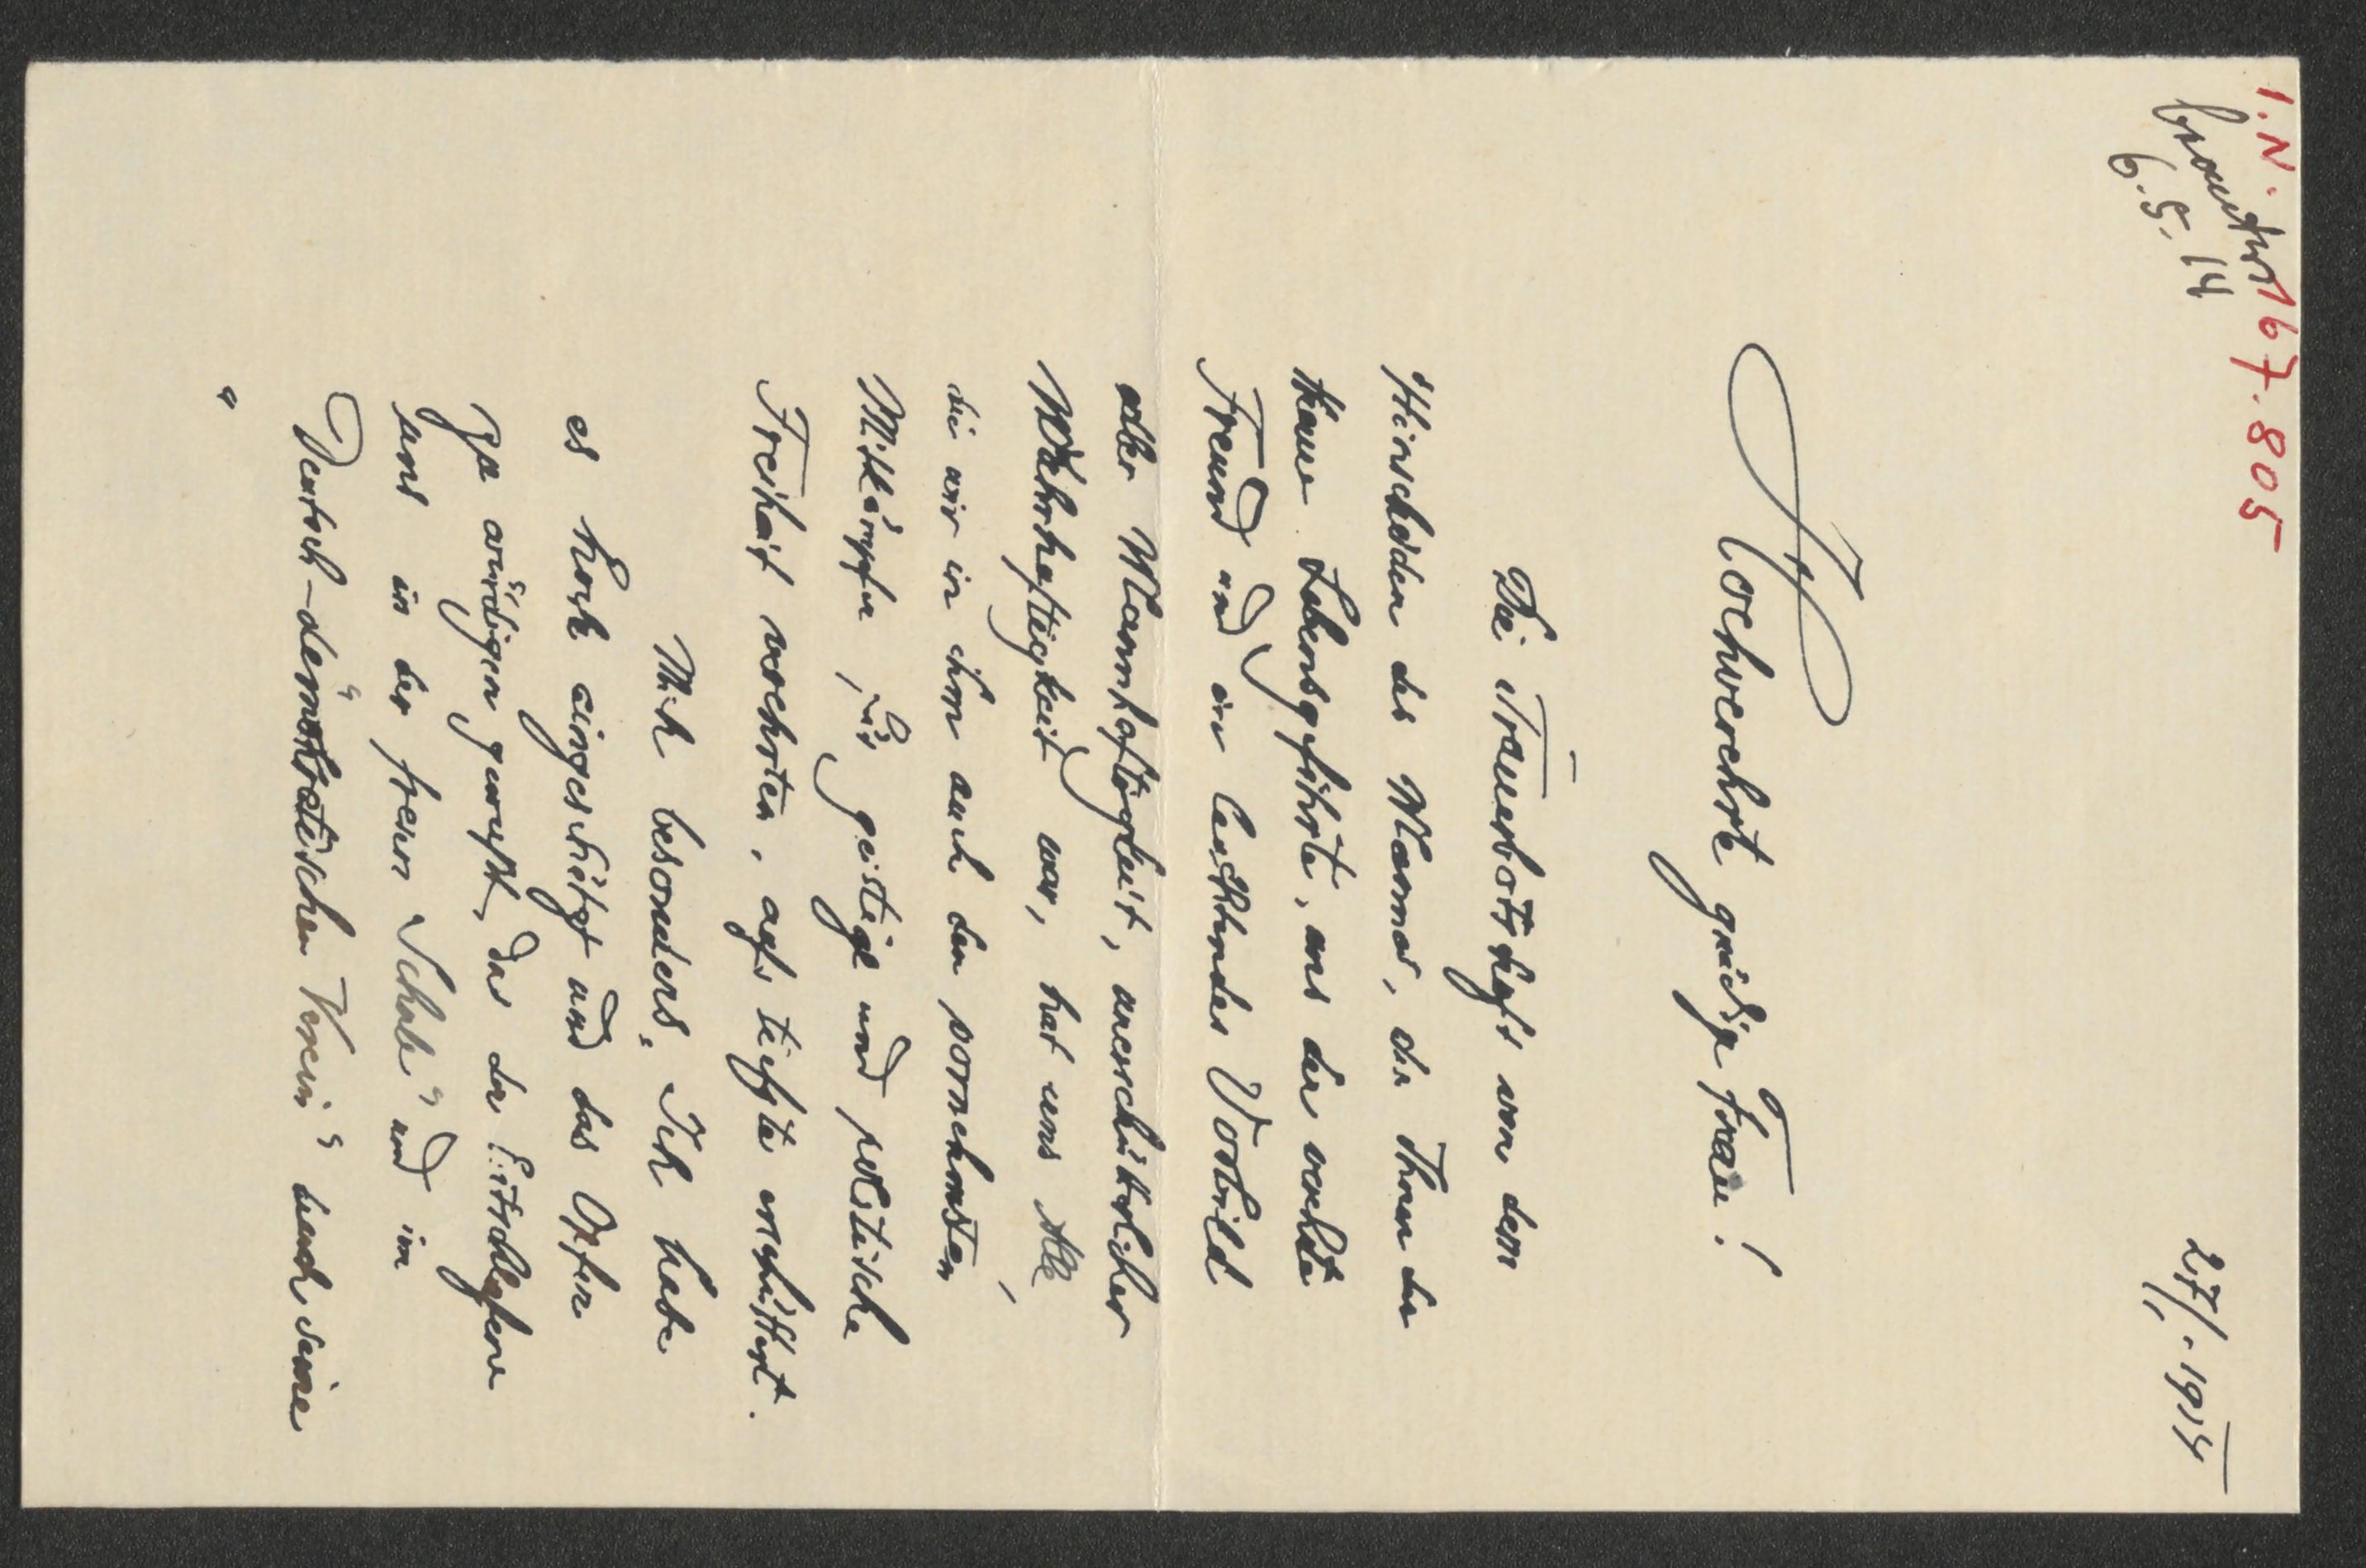 I.N. 167.805
beantwortet
6.5.14
27/1. 1914
Hochverehrte gnädige Frau!
Die Trauerbotschaft von dem
Hinscheiden des Mannes, der Ihnen der
treue Lebensgefährte, uns der verehrte
Freund und ein leuchtendes Vorbild
edler Mannhaftigkeit, unerschütterlicher
Wahrhaftigkeit war, hat uns Alle,
die wir in ihm auch den vornehmsten
Mitkämpfer für geistige und politische
Freiheit verehrten, aufs tiefste erschüttert.
Mich besonders. Ich habe
es hoch eingeschätzt und das Opfer
zu würdigen gewusst, das der
uns in der freien Schule" und im
Deutsch-demokratischen Verein" durch seine